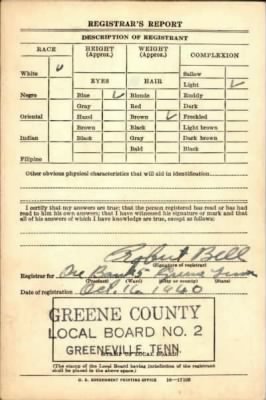 REGISTRAR'S REPORT
DESCRIPTION OF REGISTRANT
RACE HEIGHT (Approx.) WEIGHT (Approx.) COMPLEXION
White ✓ Sallow
EYES HAIR Light ✓
Negro Blue ✓ Blonde Ruddy
Gray Red Dark
Oriental Hazel Brown ✓ Freckled
Brown Black Light brown
Indian Black Gray Dark brown
Bald Black
Filipino
Other obvious physical characteristics that will aid in identification
I certify that my answers are true; that the person registered has read or has
had read to him his own answers; that I have witnessed his signature or mark and that
all of his answers of which I have knowledge are true, except as follows:
Robert Bell
(Signature of registrar)
Registrar for
(Precinct) (Ward) (City or county) (State)
Date of registration Oct. 16 1940
GREENE COUNTY
LOCAL BOARD NO. 2
GREENEVILLE, TENN.
STAMP OF LOCAL BOARD
(The stamp of the Local Board having jurisdiction of the registrant
shall be placed in the above space.)
U. S. GOVERNMENT PRINTING OFFICE